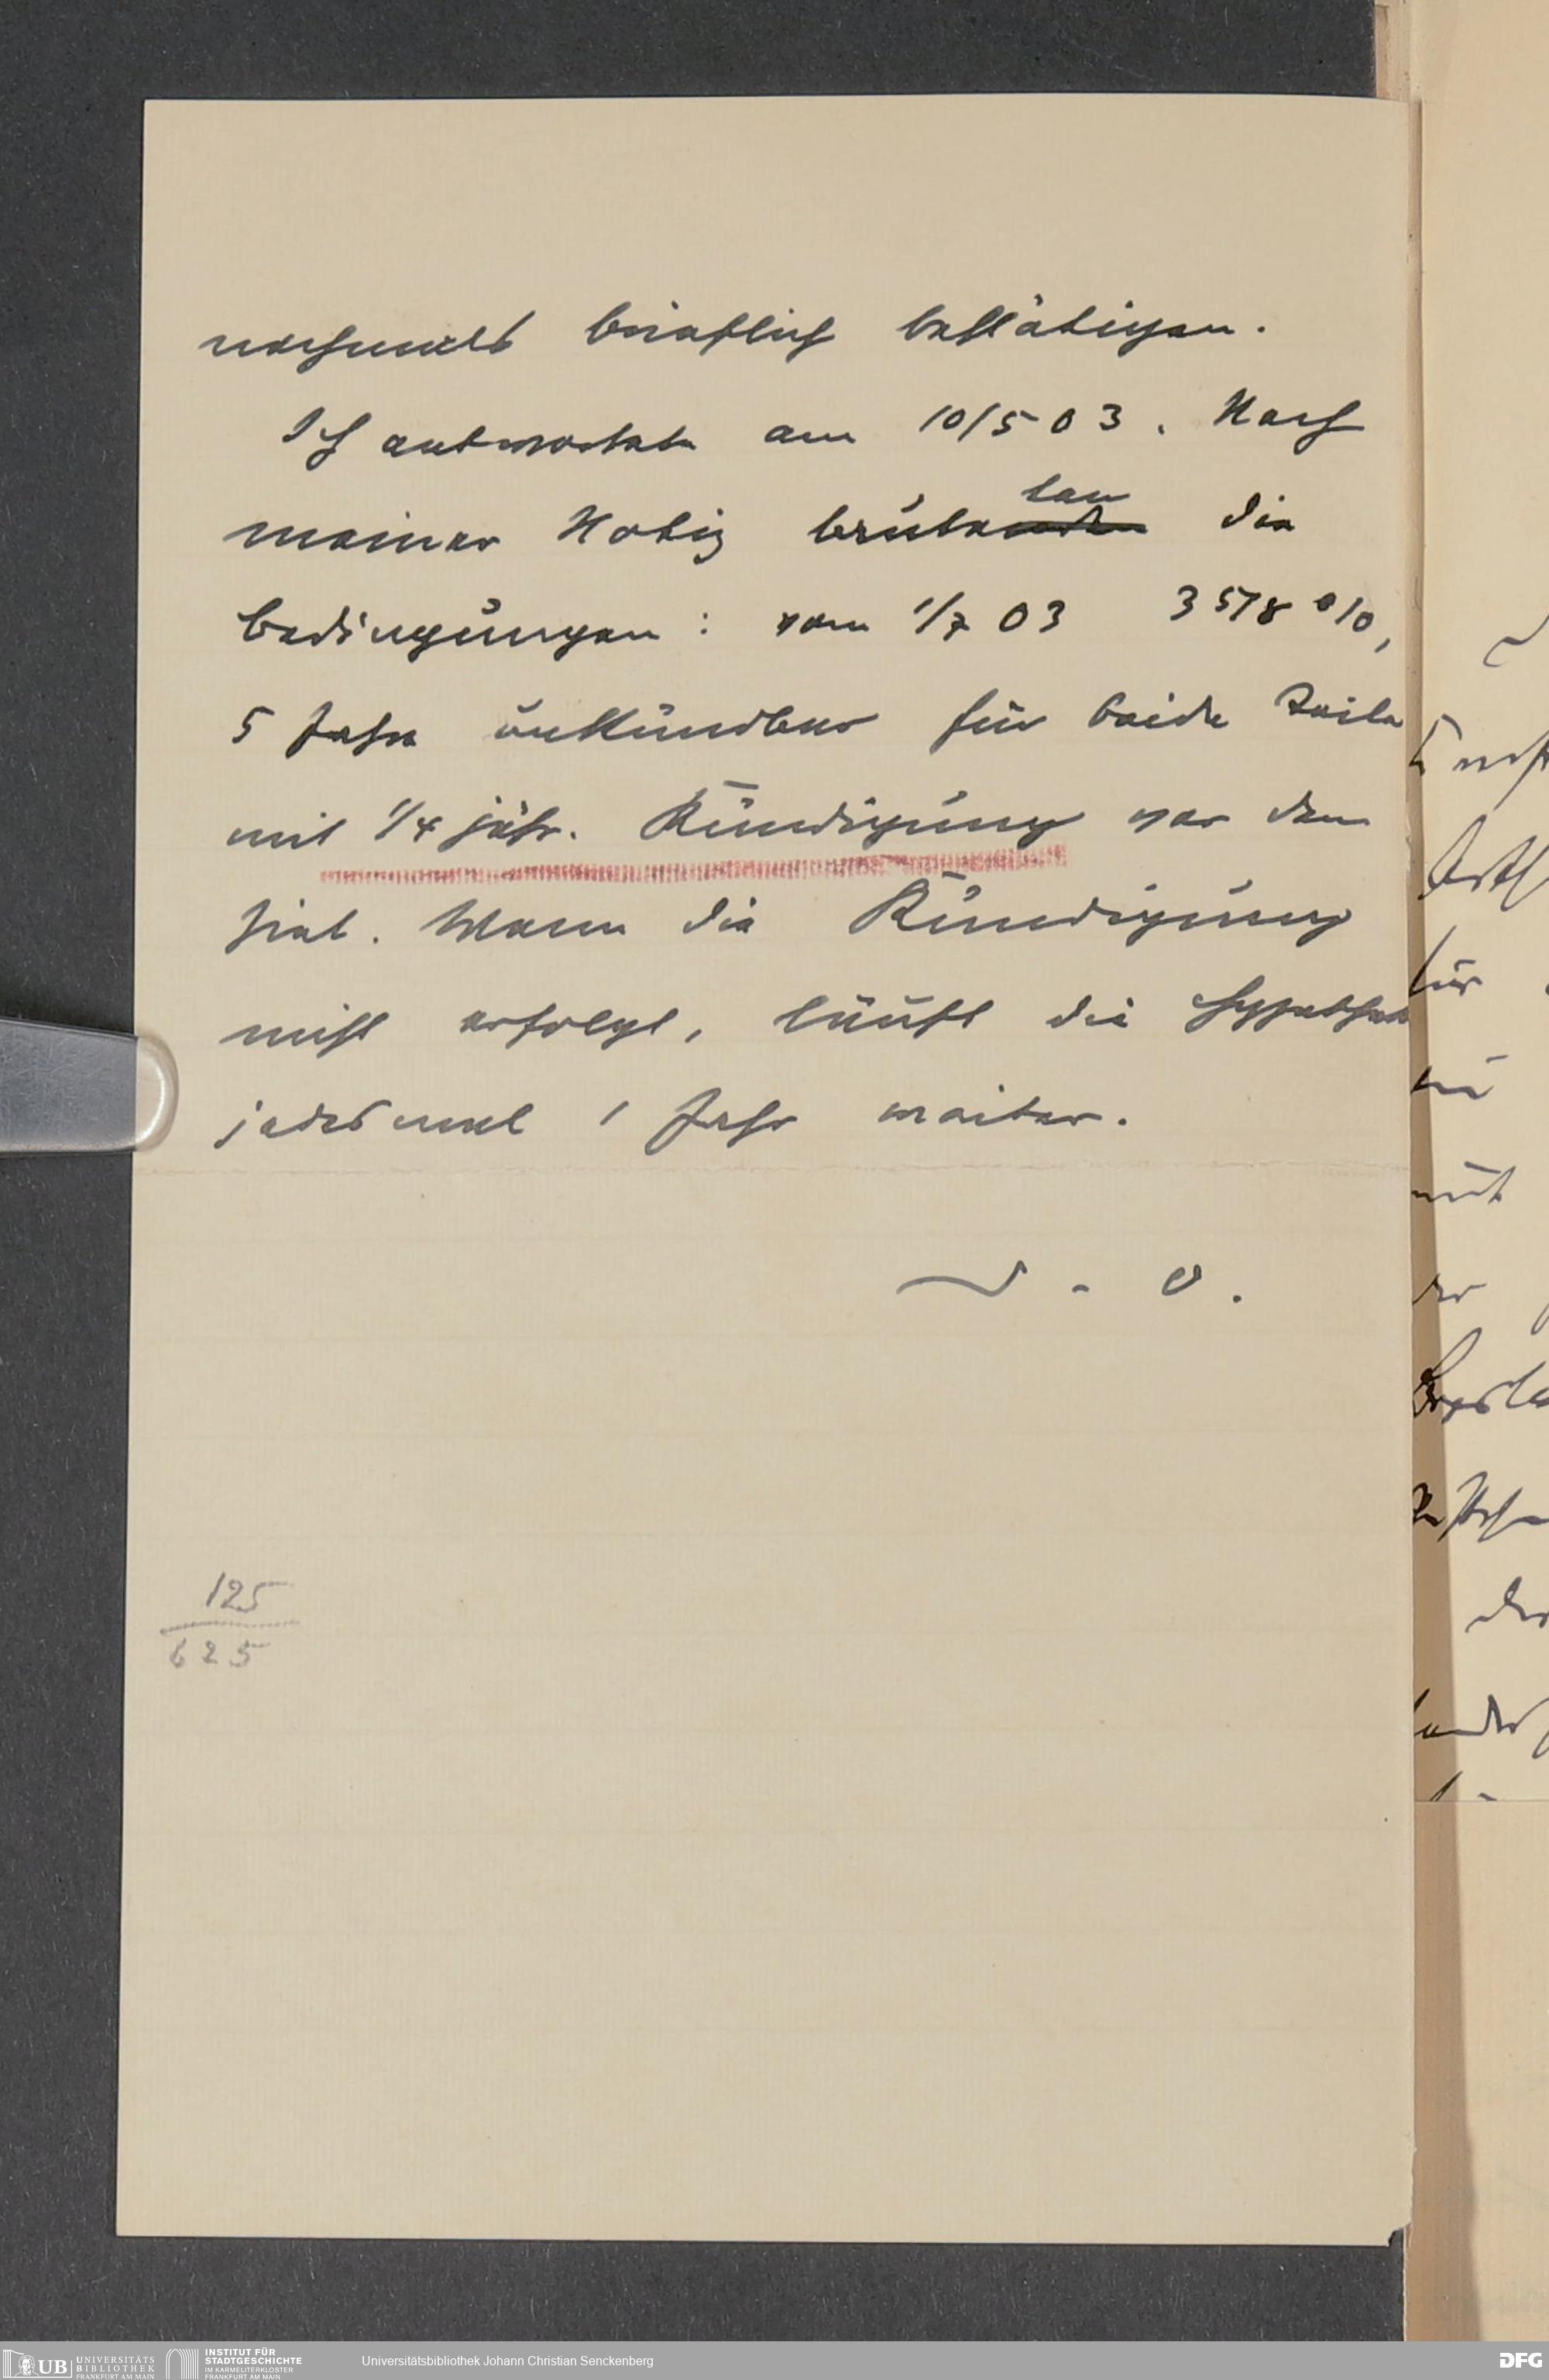 nochmals brieflich bestätigen.
Ich antwortete am 10/5 03. Nach
meiner Notiz lauten die
Bedingungen: vom 1/7 03 3 5/8 %,
5 Jahre unkündbar für beide Teile
mit 1/4 jähr. Kündigung vor dem
Ziel. Wenn die Kündigung
nicht erfolgt, läuft die Hypothek
jedesmal 1 Jahr weiter.
125
625
UB UNIVERSITÄTS
BIBLIOTHEK
FRANKFURT AM MAIN
INSTITUT FÜR
STADTGESCHICHTE
IM KARMELITERKLOSTER
FRANKFURT AM MAIN
Universitätsbibliothek Johann Christian Senckenberg
DFG